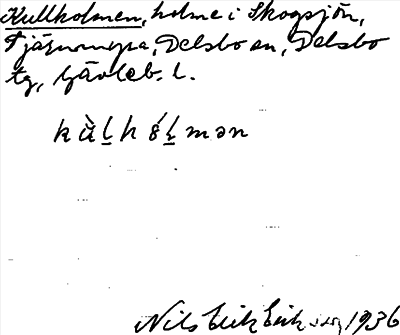 Kullholmen, holme i Skogsjön,
Tjärnmyra, Delsbo sn, Delsbo
tg, Gävleb. l.
k ù̀ l̲ h ó l̲ m ə n
Nils Erik Eriksson 1936